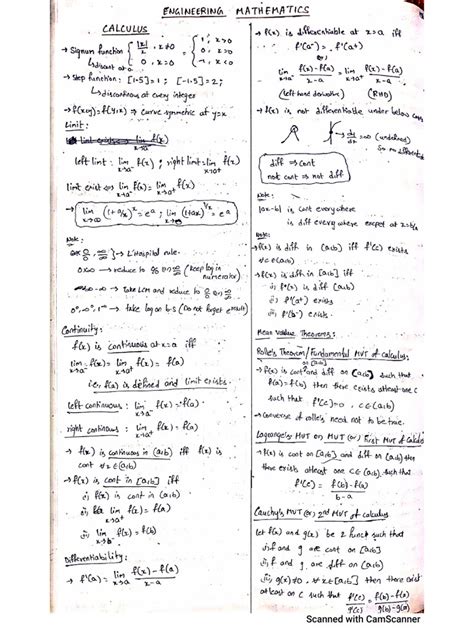 ENGINEERING MATHEMATICS
CALCULUS
→ Signum function { |x|/x , x≠0 = { 1, x>0
0 , x=0 0, x=0
-1, x<0
↳ discont at 0
→ Step function : [1.5]=1; [-1.5]=2;
↳ discontinuous at every integer
→ f(x,y)=f(y,x) ⇒ curve symmetric at y=x
Limit:
left limit : lim x→a⁻ f(x) ; right limit = lim x→a⁺ f(x)
limit exist ⇔ lim x→a⁻ f(x) = lim x→a⁺ f(x)
→ lim x→∞ (1+a/x)^x = e^a ; lim x→0 (1+ax)^1/x = e^a
Note:
0/0, ∞/∞ } → L'Hospital rule
0×∞ → reduce to 0/0 (or) ∞/∞ (keep log in
numerator)
∞-∞ → take LCM and reduce to 0/0 (or) ∞/∞
0^0, 1^∞ → take log on b.s (Do not forget e^result)
Continuity:
f(x) is continuous at x=a iff
lim x→a⁻ f(x) = lim x→a⁺ f(x) = f(a)
i.e., f(a) is defined and limit exists.
left continuous : lim x→a⁻ f(x) = f(a)
right continuous : lim x→a⁺ f(x) = f(a)
→ f(x) is continuous in (a,b) iff f(x) is
cont ∀ x ∈ (a,b)
→ f(x) is cont in [a,b] iff
i) f(x) is cont in (a,b)
ii) lim x→a⁺ f(x) = f(a)
iii) lim x→b⁻ f(x) = f(b)
Differentiability:
→ f'(a) = lim x→a f(x)-f(a) / x-a
→ f(x) is differentiable at x=a iff
f'(a⁻) = f'(a⁺)
lim x→a⁻ f(x)-f(a) / x-a = lim x→a⁺ f(x)-f(a) / x-a
(left hand derivative) (RHD)
→ f(x) is not differentiable under below
dy/dx = ∞ (undefined)
diff ⇒ cont
not cont ⇒ not diff
Note:
|ax-b| is cont everywhere
is diff every where except at x=b/a
→ f(x) is diff in (a,b) iff f'(c) exists
∀ c∈(a,b)
→ f(x) is diff in [a,b] iff
i) f(x) is diff in (a,b)
ii) f'(a⁺) exists
iii) f'(b⁻) exists
Mean Value Theorems:
Rolle's Theorem/Fundamental MVT of calculus:
→ f(x) is cont on [a,b] and diff on (a,b) such that
f(a)=f(b) then there exists atleast one c
such that f'(c)=0, c∈(a,b)
→ Converse of rolle's need not to be true.
Lagrange's MVT or MVT (or) First MVT of Calculus
→ f(x) is cont on [a,b] and diff on (a,b) then
there exists atleast one c∈(a,b) such that
f'(c) = f(b)-f(a) / b-a
Cauchy's MVT (or) 2nd MVT of calculus
Let f(x) and g(x) be 2 funct such that
i) f and g are cont on [a,b]
ii) f and g are diff on (a,b)
iii) g'(x)≠0, ∀ x∈(a,b) then there exist
atleast on c such that f'(c)/g'(c) = f(b)-f(a) / g(b)-g(a)
Scanned with CamScanner